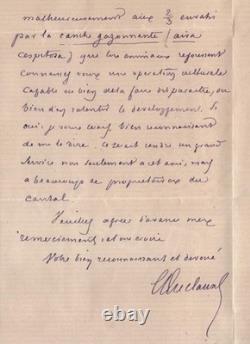 malheureusement aux 2/3 envahi
par la canche gazonnante (aira
cespitosa) que les animaux refusent
Connaissez vous une opération culturale
Capable ou bien de la faire disparaître, ou
bien d'en ralentir le développement. Si
oui, je vous serais bien reconnaissant
de me le dire. Ce serait rendre un grand
Service non seulement à cet ami, mais
à beaucoup de propriétaires du
Cantal.
Veuillez agréer d'avance mes
remerciements et me croire
Votre bien reconnaissant et dévoué
© ebay